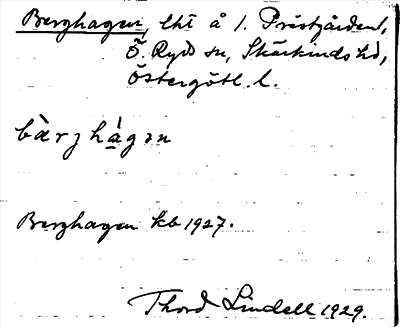 Berghagen, lht å 1. Prästgården,
Ö. Ryd sn, Skärkinds hd,
Östergötl. l.
bæ̀rjhàgən
Berghagen kb 1927.
Thord Lindell 1929.